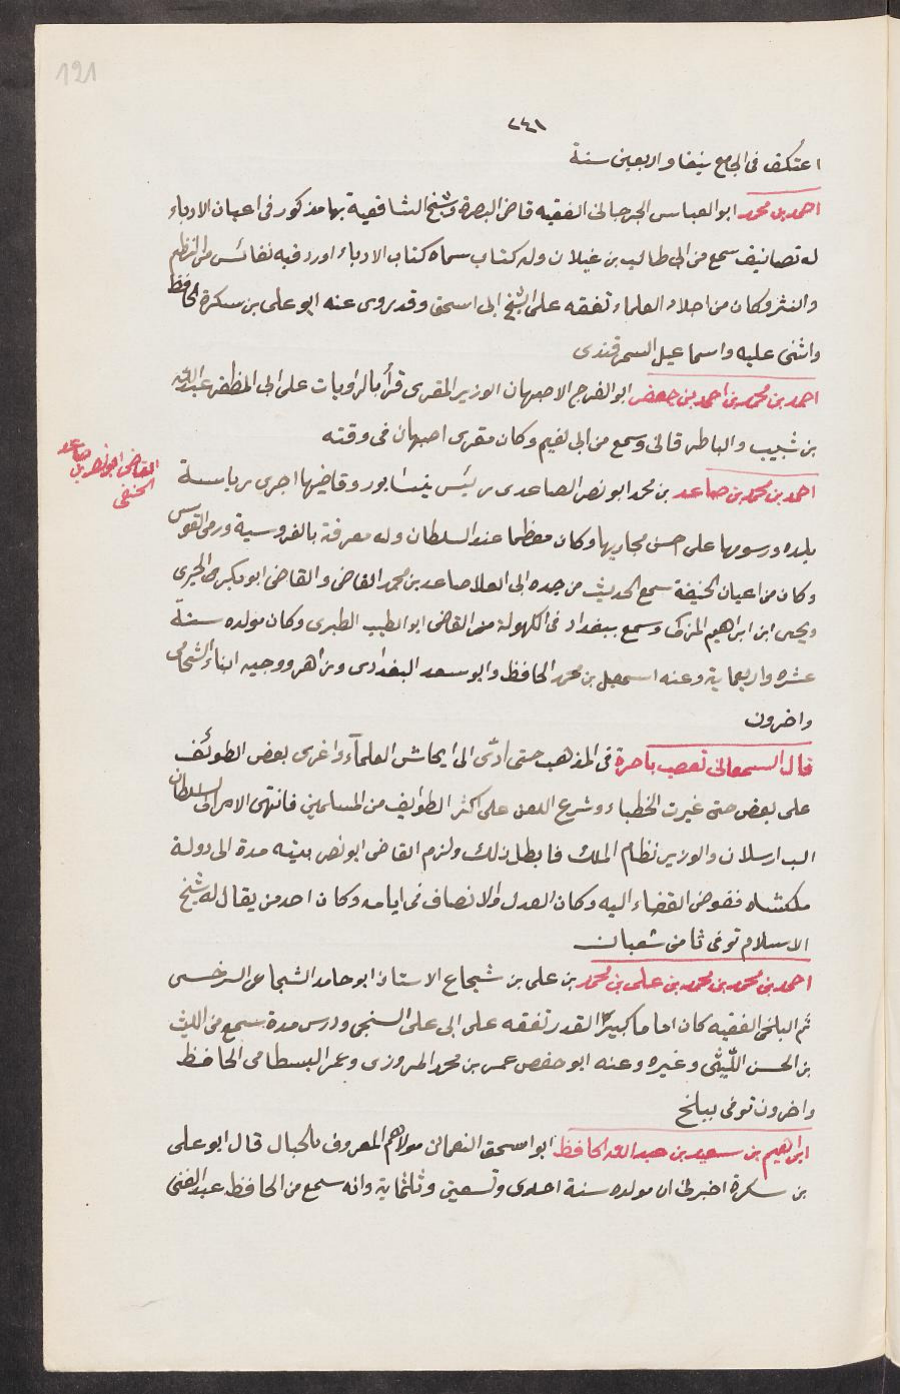 121
٢٤١
اعتكف فى الجامع نيفا واربعين سنة
احمد بن محمد ابو العباس الجرجانى الفقيه قاضى البصرة وشيخ الشافعية بها مذكور فى اعيان الادباء
له تصانيف سمع من ابى طالب بن غيلان وله كتاب سماه كتاب الادباء اورد فيه نفائس من النظم
والنثر وكان من اجلاء العلماء تفقه على الشيخ ابى اسحق وقد روى عنه ابو على بن سكرة الحافظ
واثنى عليه واسماعيل السمرقندى
احمد بن محمد بن احمد بن جعفر ابو الفرج الاصبهان الوزير المقرى قرأ بالروايات على ابى المظفر عبد الله
بن شبيب والباطرقانى وسمع من ابى نعيم وكان مقرى اصبهان فى وقته
القاضى ابو نصر بن صاعد
الحنفى
احمد بن محمد بن صاعد بن محمد ابو نصر الصاعدى رئيس نيسابور وقاضيها اجرى رياسة
بلده ورسومها على احسن مجاريها وكان معظما عند السلطان وله معرفة بالفروسية ورمى القوس
وكان من اعيان الحنيفة سمع الحديث من جده ابى العلا صاعد بن محمد القاضى والقاضى ابو بكر الحيرى
ويحيى ابن ابراهيم المزكى وسمع ببغداد فى الكهولة من القاضى ابو الطيب الطبرى وكان مولده سنة
عشره واربعماية وعنه اسمعيل بن محمد الحافظ وابو سعد البغدادى وزاهر ووجيه ابناء الشحامى
واخرون
قال السمعانى تعصب بأخرة فى المذهب حتى أدّى الى ايحاش العلمآء واغرى بعض الطوئف
على بعض حتى غيرت الخطباء وشرع اللعن على اكثر الطوايف من المسلمين فانتهى الامر الى السلطان
الب ارسلان والوزير نظام الملك فابطل ذلك ولزم القاضى ابو نصر بيته مدة الى دولة
ملكشاه ففوض القضاء اليه وكان العدل والانصاف فى ايامه وكان احد من يقال له شيخ
الاسلام توفى ثامن شعبان
احمد بن محمد بن محمد بن على بن محمد بن على بن شجاع الاستاذ ابو حامد الشجاعى السرخسى
ثم البلخى الفقيه كان اماما كبيرًا القدر تفقه على ابى على السنجى ودرس مدة سمع من الليث
بن الحسن الليثى وغيره وعنه ابو حفص عمر بن محمد المروزى وعمر البسطامى الحافظ
واخرون توفى ببلخ
ابراهيم بن سعيد بن عبد الله الحافظ ابو اسحق النعمانى مولاهم المعروف بالحبال قال ابو على
بن سكرة اخبرنى ان مولده سنة احدى وتسعين وثلثماية وانه سمع من الحافظ عبد الغنى